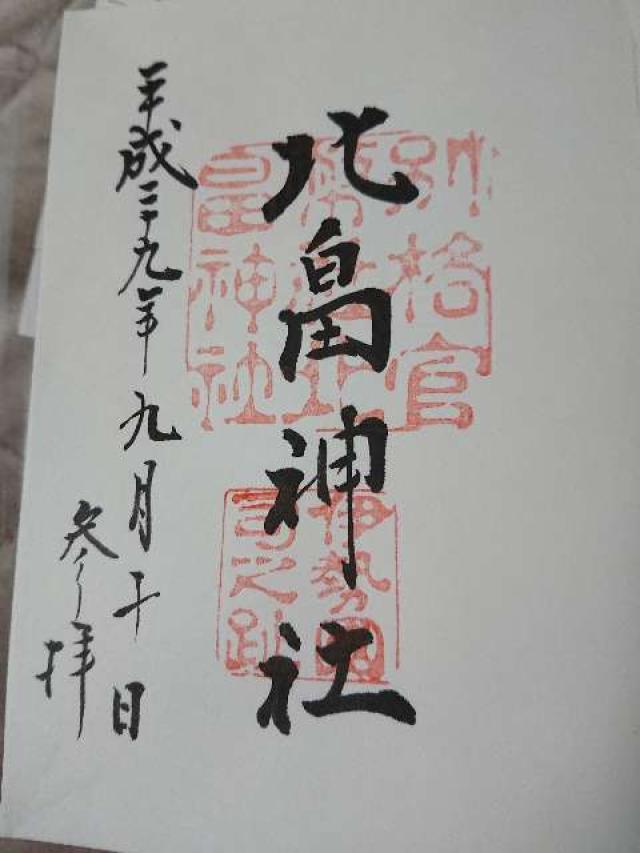 別格官
幣社北
畠神社
北畠神社
伊勢國
司之跡
平成二十九年九月十日
参拝